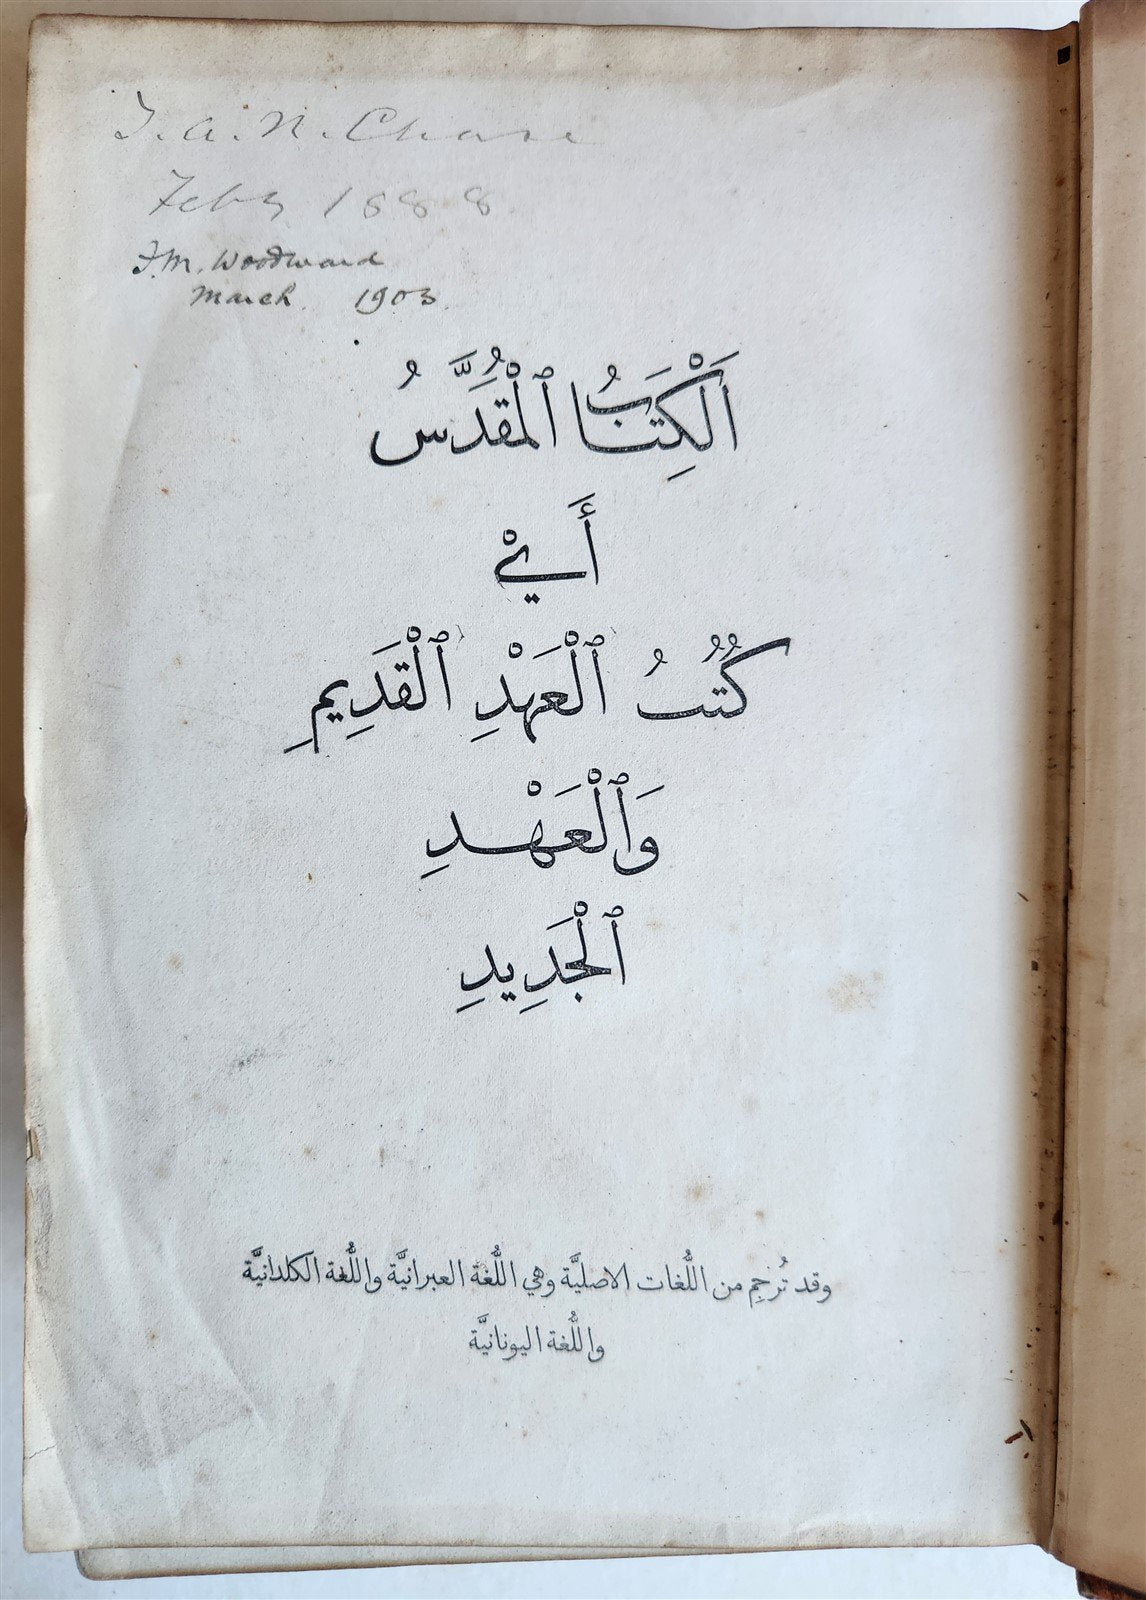 T. A. N. Chase
Feby 1888
F. M. Woodward
March 1903.
اَلْكِتَابُ ٱلْمُقَدَّسُ
أَيْ
كُتُبُ ٱلْعَهْدِ ٱلْقَدِيمِ
وَٱلْعَهْدِ
ٱلْجَدِيدِ
وقد تُرجِم من اللُّغات الاصليَّة وهي اللُّغة العبرانيَّة واللُّغة الكلدانيَّة
واللُّغة اليونانيَّة